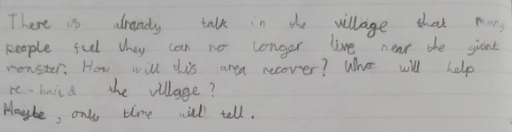 There is already talk in the village that many
people feel they can no longer live near the giant
monster. How will this area recover? Who will help
re-build the village?
Maybe, only time will tell.